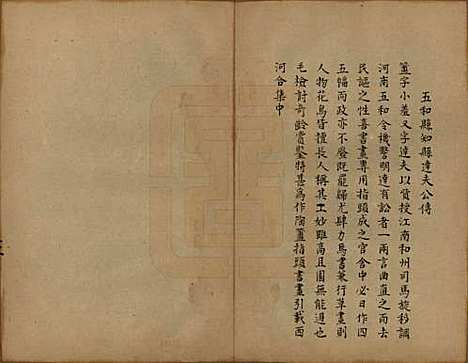 五和縣知縣達夫公傳
簠字小羞又字達夫以貲授江南和州司馬旋移調
河南五和令機警明達有訟者一兩言曲直之而去
民謳之性喜書畫專用指頭成之官舍中必日作四
五幅而政亦不廢既罷歸尤肆力焉書兼行草畫則
人物花鳥皆擅長人稱其工妙雖高且園無能過也
毛檢討奇齡賞鑒特甚為作陶簠指頭書畫引載西
河合集中